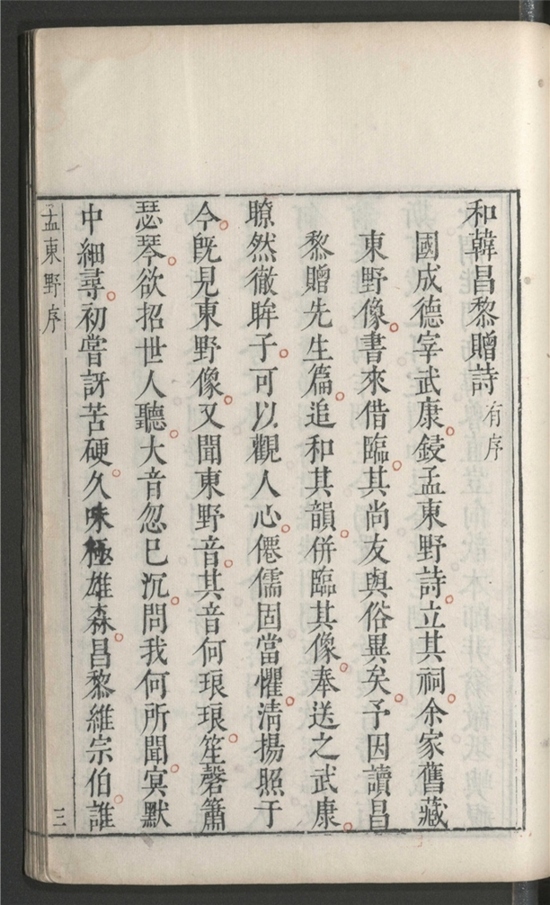 和韓昌黎贈詩有序
國成德宰武康鋟孟東野詩立其祠余家舊藏
東野像書來借臨其尚友與俗異矣予因讀昌
黎贈先生篇追和其韻併臨其像奉送之武康
瞭然徹眸子可以觀人心僊儒固當懼清揚照于
今旣見東野像又聞東野音其音何琅琅笙磬簫
瑟琴欲招世人聽大音忽已沉問我何所聞寘默
中細尋初嘗訝苦硬久味極雄森昌黎維宗伯誰
孟東野序
三